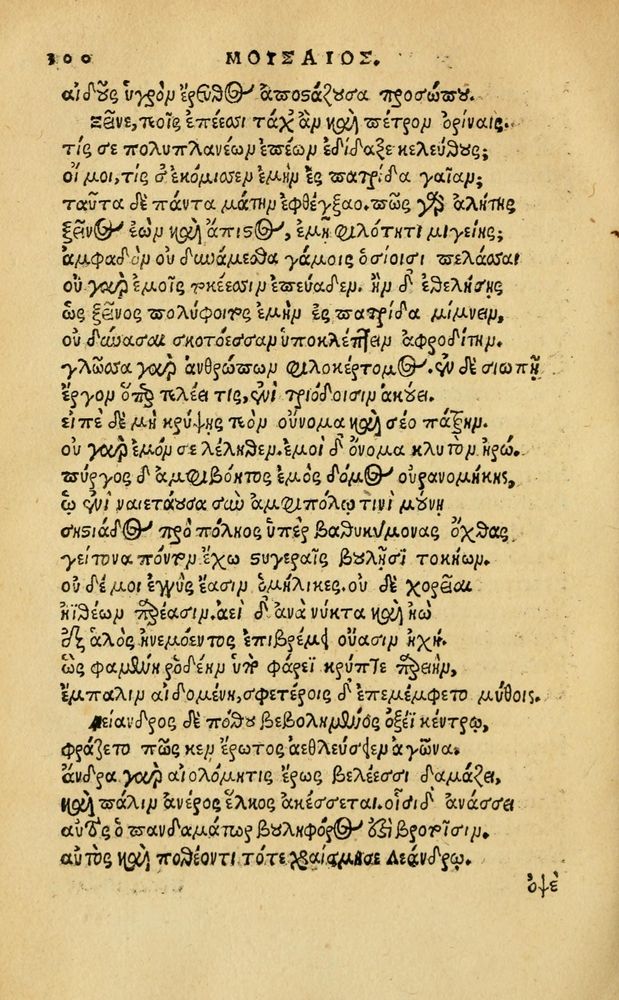 300 ΜΟΥΣΑΙΟΣ.
αἰδοῦς ὑγρὸν ἔρευθος ἀποστάζουσα προσώπου.
Ξεῖνε, τοῖς ἐπέεσσι τάχ' ἂν καὶ πέτρον ὀρίναις.
τίς σε πολυπλανέων ἐπέων ἐδίδαξε κελεύθους;
οἴ μοι, τίς σ' ἐκόμισσεν ἐμὴν ἐς πατρίδα γαῖαν;
ταῦτα δὲ πάντα μάτην ἐφθέγξαο. πῶς γὰρ ἀλήτης
ξεῖνος ἐὼν καὶ ἄπιστος, ἐμῇ φιλότητι μιγείης;
ἀμφαδὸν οὐ δυνάμεσθα γάμοις ὁσίοισι πελάσσαι
οὐ γὰρ ἐμοῖς τοκέεσσιν ἐπεύαδεν. ἢν δ' ἐθελήσῃς
ὡς ξεῖνος πολύφοιτος ἐμὴν ἐς πατρίδα μίμνειν,
οὐ δύνασαι σκοτόεσσαν ὑποκλέπτειν ἀφροδίτην.
γλῶσσα γὰρ ἀνθρώπων φιλοκέρτομος. ἐν δὲ σιωπῇ
ἔργον ὅπερ τελέει τις, ἐνὶ τριόδοισιν ἀκούει.
εἰπὲ δὲ μὴ κρύψῃς τεὸν οὔνομα καὶ σέο πάτρην.
οὐ γὰρ ἐμόν σε λέληθεν. ἐμοὶ δ' ὄνομα κλυτὸν ἡρώ.
πύργος δ' ἀμφιβόητος ἐμὸς δόμος οὐρανομήκης,
ᾧ ἐνὶ ναιετάουσα σὺν ἀμφιπόλῳ τινὶ μούνῃ
σηστιάδος πρὸ πόληος ὑπὲρ βαθυκύμονας ὄχθας
γείτονα πόντον ἔχω στυγεραῖς βουλῇσι τοκήων.
οὐδέ μοι ἐγγὺς ἔασιν ὁμήλικες. οὐ δὲ χορεῖαι
ἠϊθέων παρέασιν. ἀεὶ δ' ἀνὰ νύκτα καὶ ἠὼ
ἐξ ἁλὸς ἠνεμόεντος ἐπιβρέμει οὔασιν ἠχή.
ὣς φαμένη ῥοδέην ὑπὸ φάρεϊ κρύπτε παρειήν,
ἔμπαλιν αἰδομένη, σφετέροις δ' ἐπεμέμφετο μύθοις.
Λείανδρος δὲ πόθου βεβολημένος ὀξέϊ κέντρῳ,
φράζετο πῶς κεν ἔρωτος ἀεθλεύσειεν ἀγῶνα.
ἄνδρα γὰρ αἰολόμητις ἔρως βελέεσσι δαμάζει,
καὶ πάλιν ἀνέρος ἕλκος ἀκέσσεται. οἷσι δ' ἀνάσσει
αὐτὸς ὁ πανδαμάτωρ βουληφόρος ἐστὶ βροτοῖσιν.
αὐτὸς καὶ ποθέοντι τότε χραίσμησε Λεάνδρῳ.
ὀψὲ